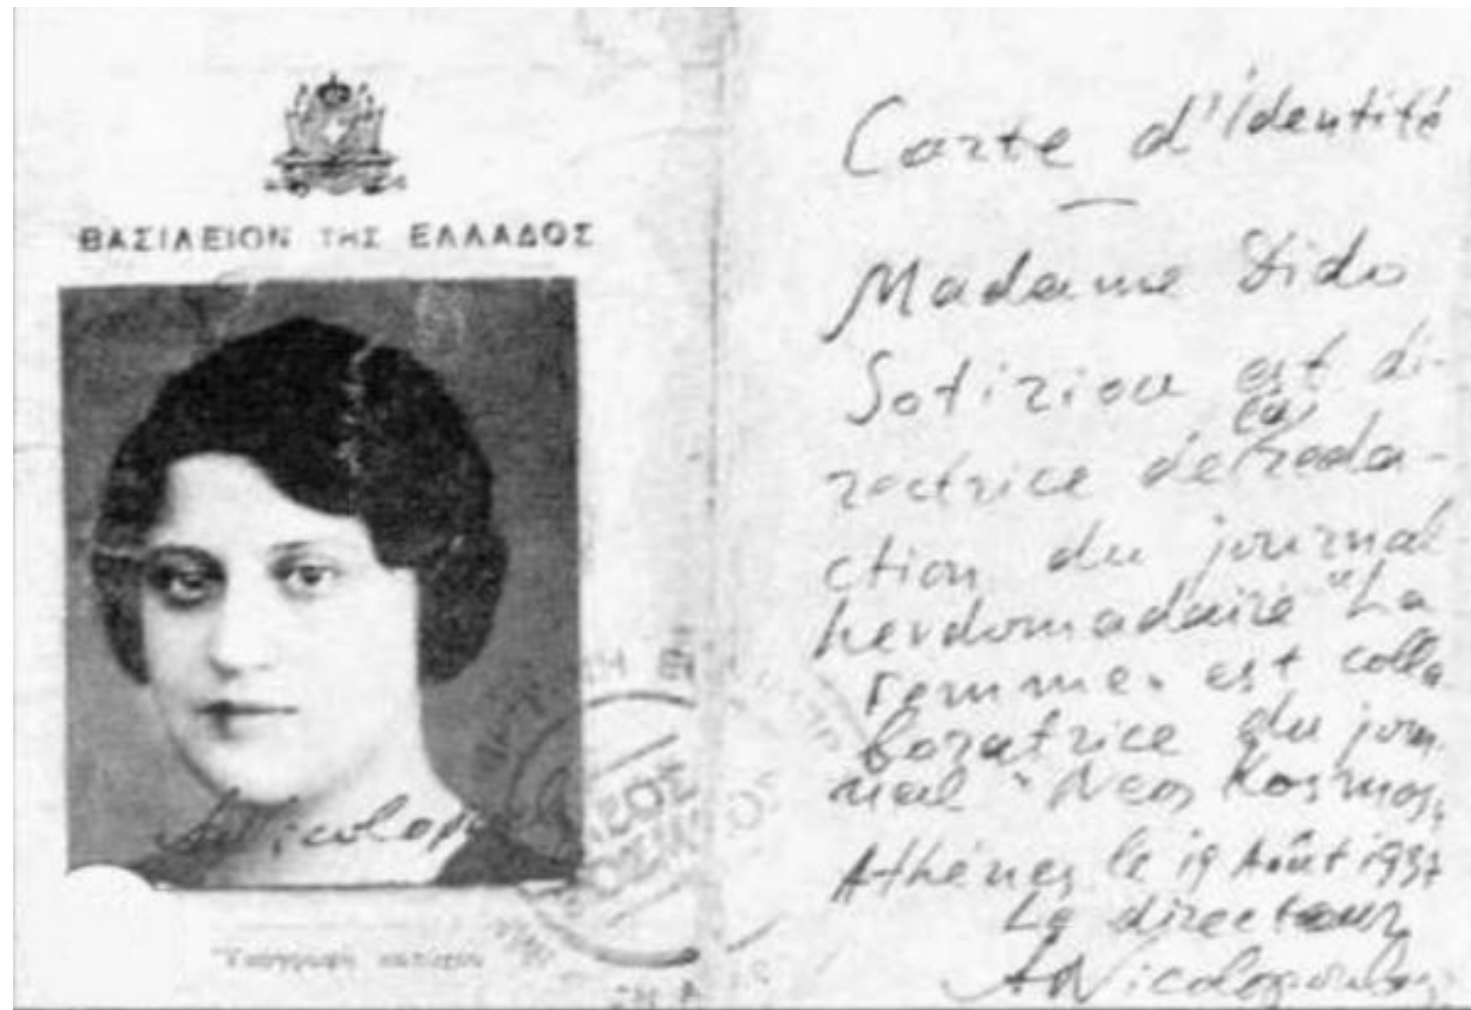 ΒΑΣΙΛΕΙΟΝ ΤΗΣ ΕΛΛΑΔΟΣ
Carte d'identité
Madame Dido
Sotiriou est di-
rectrice de la réda-
ction du journal
hevdomadaire "La
Femme" est colla
boratrice du jour
nal "Neos Kosmos"
Athénes le 19 Août 1937
Le directeur
ANicolopoulos